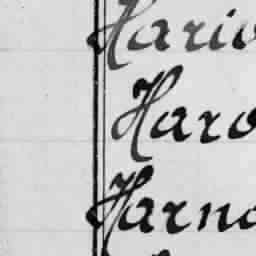 Hario
Haro
Harno